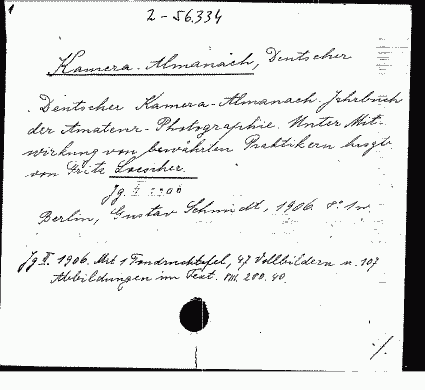 1
2-56.334
Kamera-Almanach, Deutscher
Deutscher Kamera-Almanach. Jahrbuch
der Amateur-Photographie. Unter Mit-
wirkung von bewährten Praktikern hrsg.
von Fritz Loescher.
Jg. 1906
Berlin, Gustav Schmidt, 1906. 8°.
Jg II. 1906. Mit 1 47 Vollbildern u. 107
Abbildungen im Text.